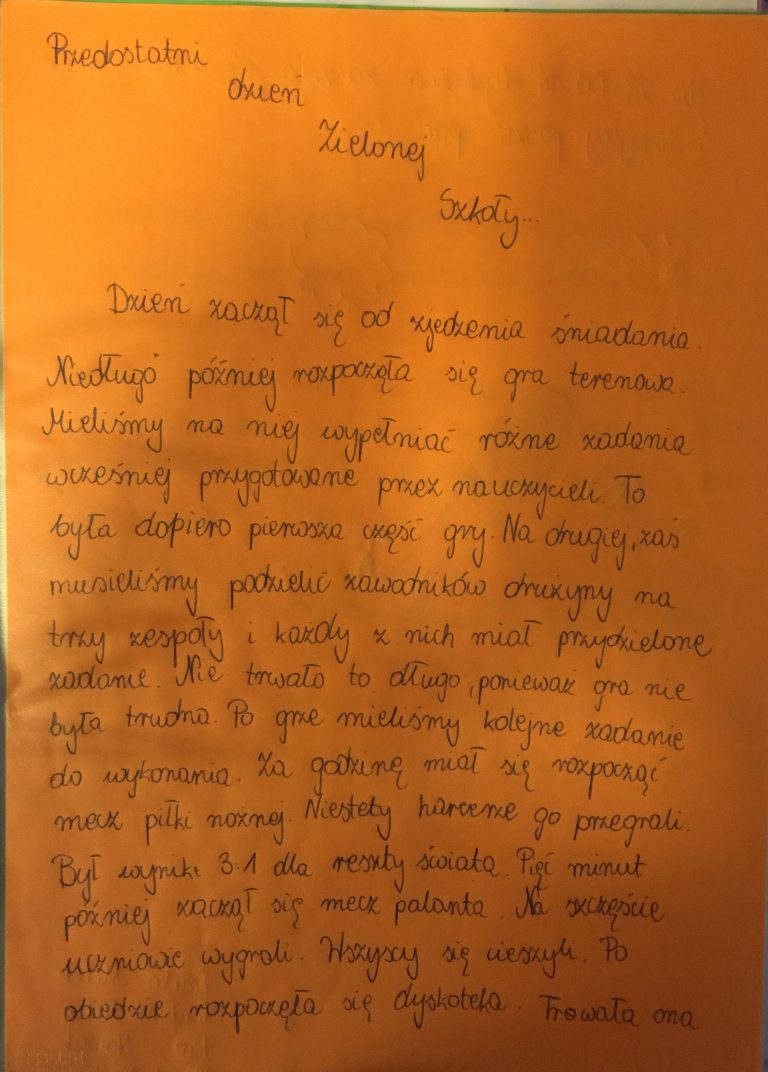 Przedostatni
dzień
Zielonej
Szkoły...
Dzień zaczął się od zjedzenia śniadania.
Niedługo później rozpoczęła się gra terenowa.
Mieliśmy na niej wypełniać różne zadania
wcześniej przygotowane przez nauczycieli. To
była dopiero pierwsza część gry. Na drugiej, zaś
musieliśmy podzielić zawodników drużyny na
trzy zespoły i każdy z nich miał przydzielone
zadanie. Nie trwało to długo, ponieważ gra nie
była trudna. Po grze mieliśmy kolejne zadanie
do wykonania. Za godzinę miał się rozpocząć
mecz piłki nożnej. Niestety harcerze go przegrali.
Był wynik 3:1 dla reszty świata. Pięć minut
później zaczął się mecz palanta. Na szczęście
uczniowie wygrali. Wszyscy się cieszyli. Po
obiedzie rozpoczęła się dyskoteka. Trwała ona